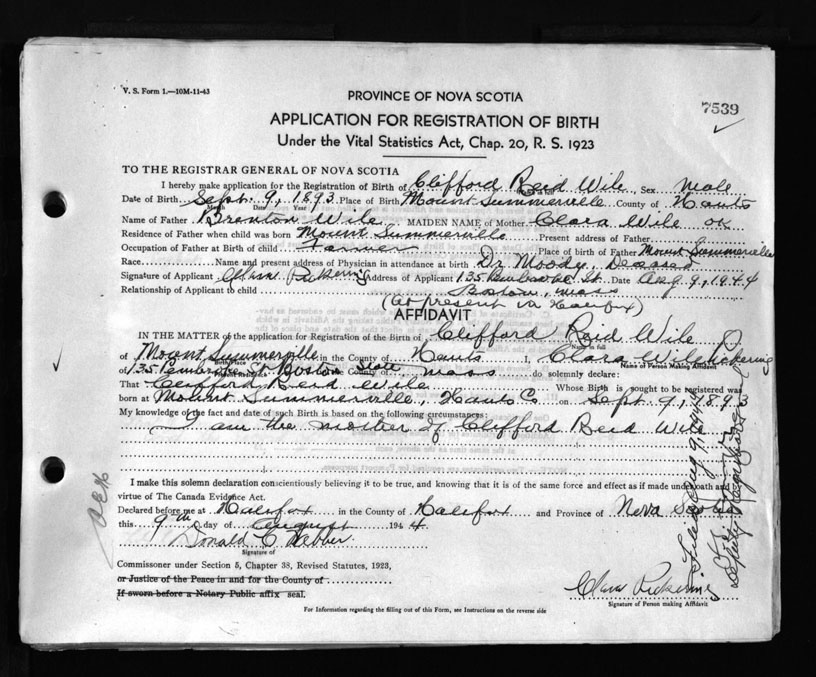 V. S. Form 1.—10M-11-43
PROVINCE OF NOVA SCOTIA
7539
APPLICATION FOR REGISTRATION OF BIRTH
Under the Vital Statistics Act, Chap. 20, R. S. 1923
TO THE REGISTRAR GENERAL OF NOVA SCOTIA
I hereby make application for the Registration of Birth of Clifford Reid Wile Sex Male
Date of Birth Sept. 9, 1893 Place of Birth Mount Summerville County of Hants
Month Date Year
Name of Father Brenton Wile MAIDEN NAME of Mother Clara Wile ok
Residence of Father when child was born Mount Summerville Present address of Father
Occupation of Father at Birth of child Farmer Place of birth of Father Mount Summerville
Race Name and present address of Physician in attendance at birth Dr. Moody
Signature of Applicant Clara Pickering Address of Applicant 135 Pembroke St. Date Aug 9, 1944
Relationship of Applicant to child Boston, Mass
(at present in Halifax)
AFFIDAVIT
IN THE MATTER of the application for Registration of the Birth of Clifford Reid Wile
Name in full
of Mount Summerville in the County of Hants I, Clara Wile Pickering
Name of Person Making Affidavit
of 135 Pembroke St Boston State County of Mass do solemnly declare:
That Clifford Reid Wile Whose Birth is sought to be registered was
born at Mount Summerville, Hants Co on Sept. 9, 1893
My knowledge of the fact and date of such Birth is based on the following circumstances:
I am the mother of Clifford Reid Wile
I make this solemn declaration conscientiously believing it to be true, and knowing that it is of the same force and effect as if made under oath and
virtue of The Canada Evidence Act.
Declared before me at Halifax in the County of Halifax and Province of Nova Scotia
this 9th day of August 1944
Donald C Webber
Signature of
Commissioner under Section 5, Chapter 38, Revised Statutes, 1923,
or Justice of the Peace in and for the County of
If sworn before a Notary Public affix seal.
Clara Pickering
Signature of Person making Affidavit
For Information regarding the filling out of this Form, see Instructions on the reverse side
Filed Aug 9, 1944
Deputy Registrar